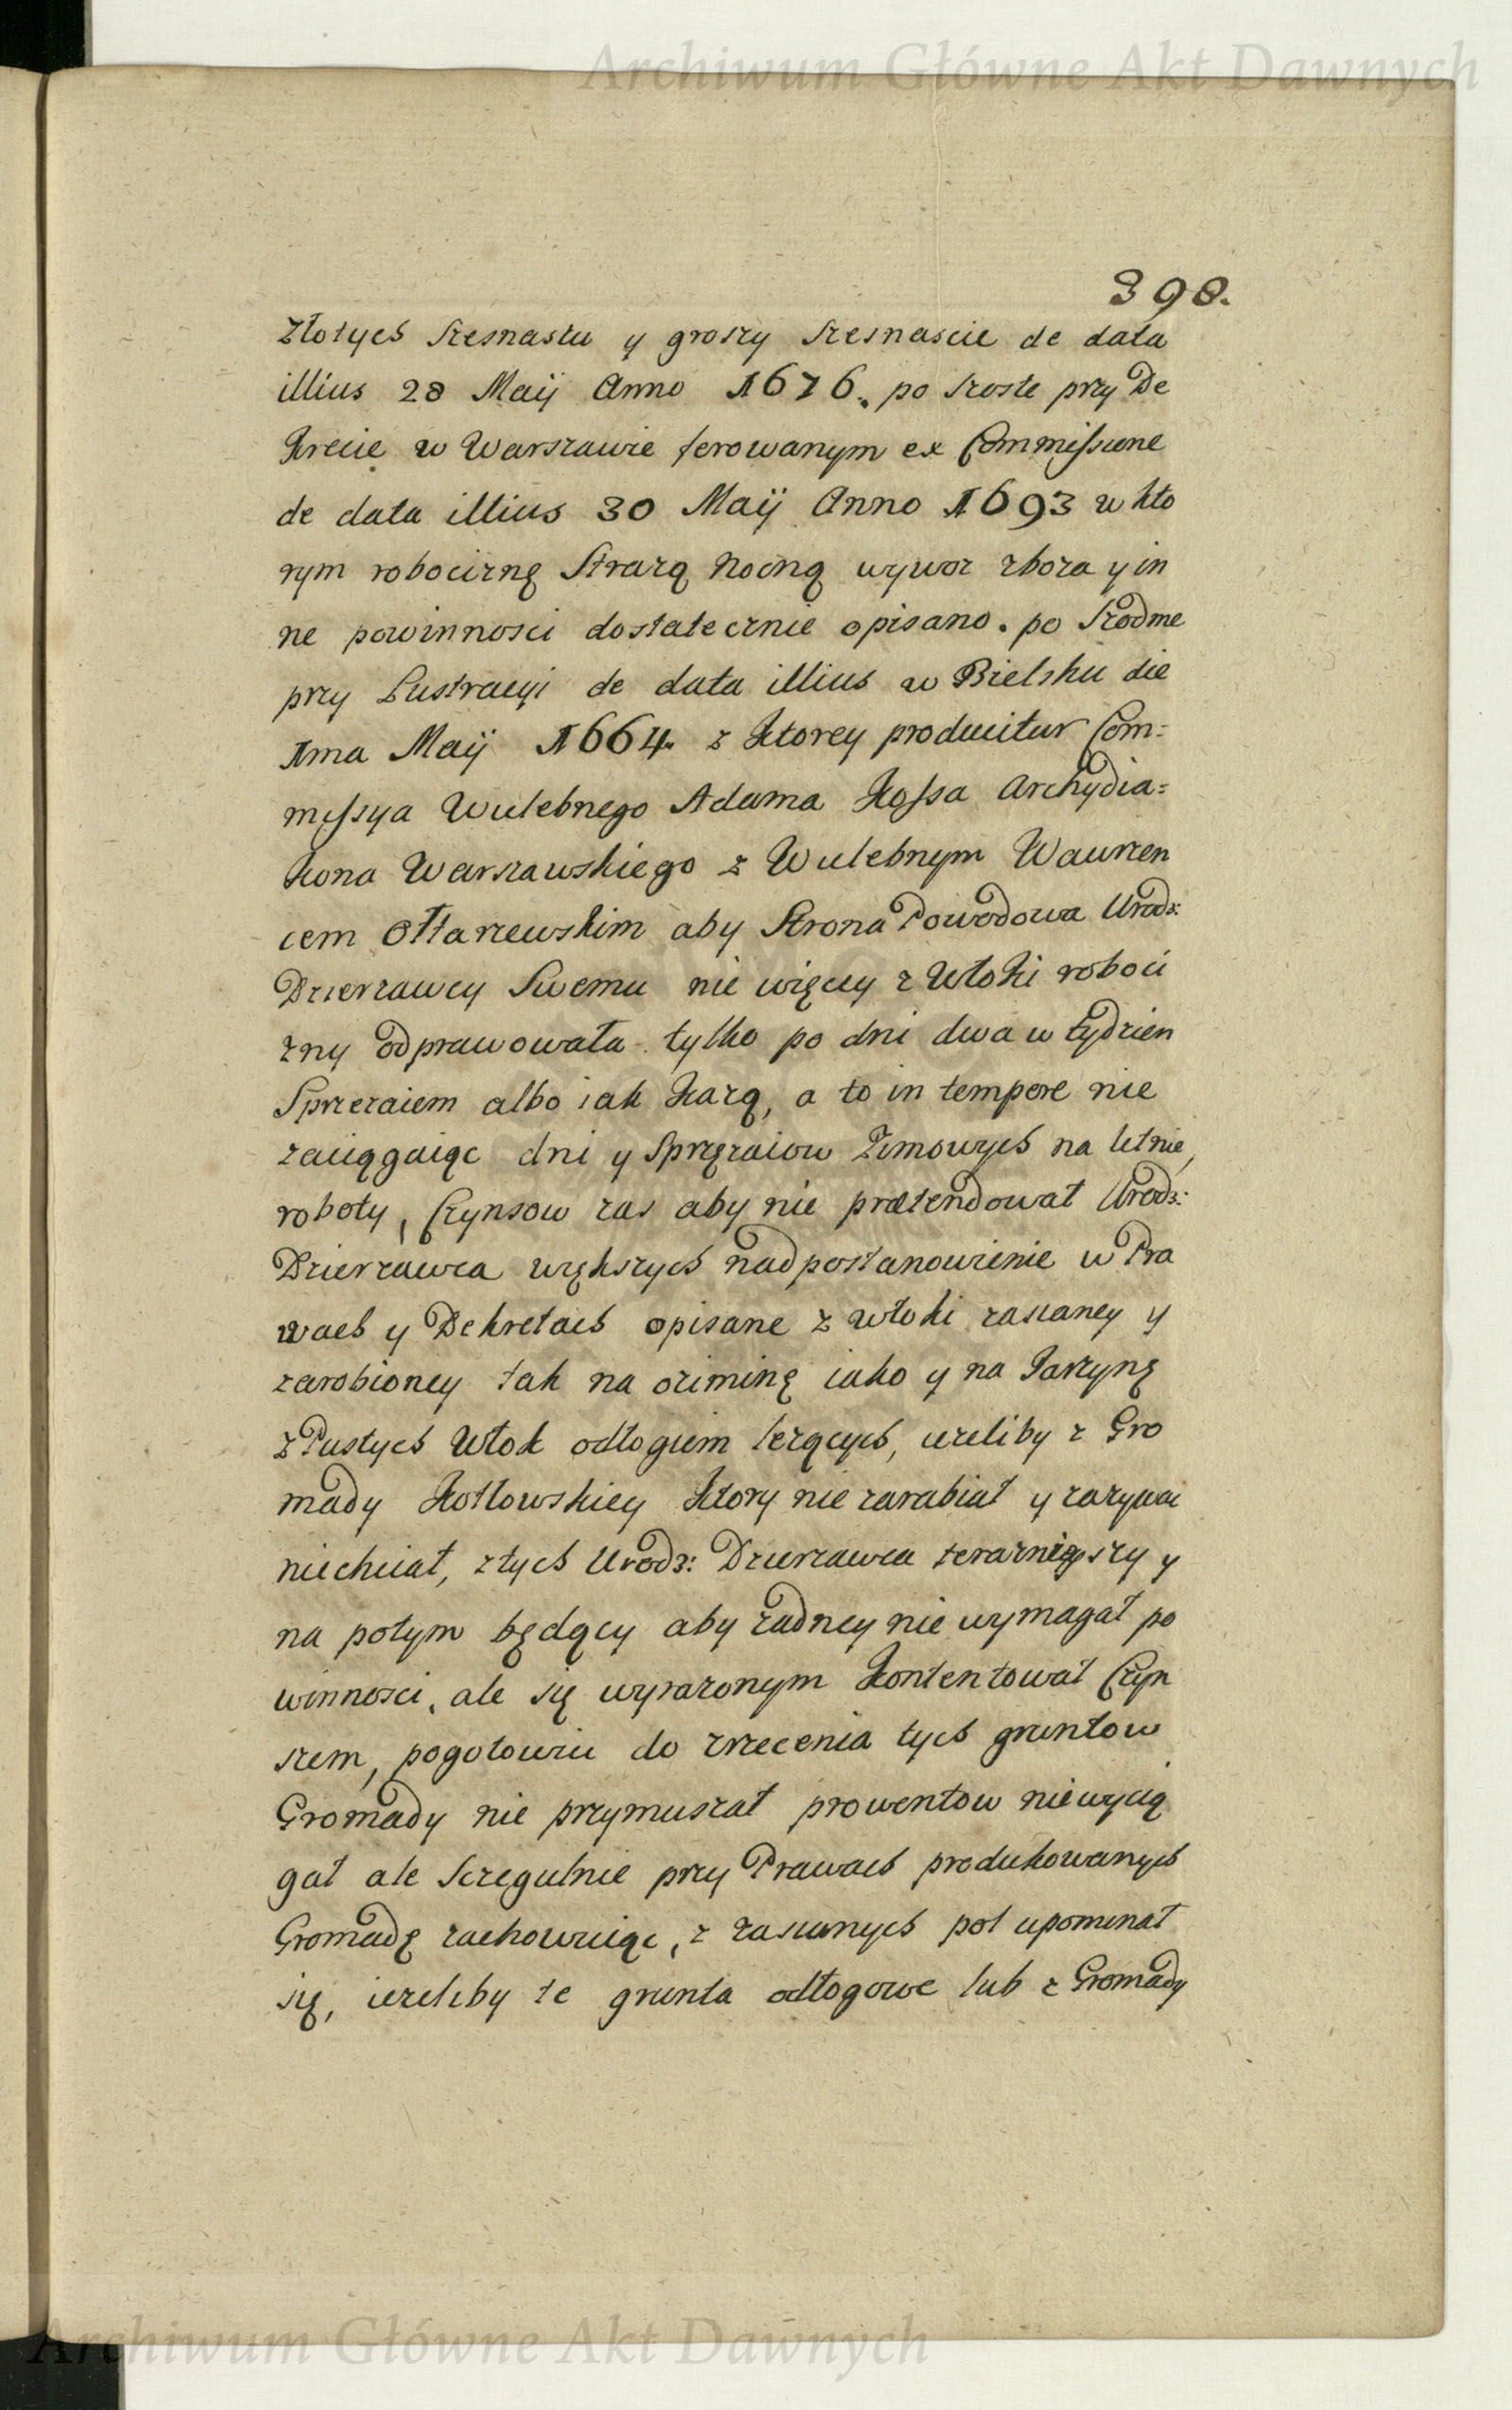 Archiwum Główne Akt Dawnych
398.
Złotych Szesnastu y groszy Szesnascie de data
illius 28 Maij Anno 1676. po szoste przy De
krecie w Warszawie ferowanym ex Commissione
de data illius 30 Maij Anno 1693 w kto
rym robociznę Strażą Nocną wywoz zboza y in
ne powinnosci dostatecznie opisano. po Siodme
przy Lustracyi de data illius w Bielsku die
1ma Maij 1664. z ktorey producitur Com=
missya Wielebnego Adama Kossa Archydia=
kona Warszawskiego z Wielebnym Wawrzen
cem Ołtarzewskim aby Strona Powodowa Urodz:
Dzierzawcy Swemu nie więcey z Włoki roboci
zny odprawowała tylko po dni dwa w tydzien
Sprzezaiem albo iak każą, a to in tempore nie
zaciągaiąc dni y Sprzęzaiow Zimowych na letnie
roboty, Czynsow zas aby nie prætendował Urodz:
Dzierzawca większych nad postanowienie w Pra
wach y Dekretach opisane z włoki zasianey y
zarobioney tak na oziminę iako y na Jarzynę
z Pustych Włok odłogiem leżących, iezeliby z Gro
mady Kotłowskiey ktory nie zarabiał y zazywac
niechciał, z tych Urodz: Dzierzawca teraznieyszy y
na potym będący aby żadney nie wymagał po
winnosci, ale się wyrazonym kontentował Czyn
szem, pogotowiu do zrzecenia tych gruntow
Gromady nie przymuszał prowentow niewycią
gał ale Szczegulnie przy Prawach produkowanych
Gromadę zachowuiąc, z zasianych pol upominał
się, iezeliby te grunta odłogowe lub z Gromady
Archiwum Główne Akt Dawnych